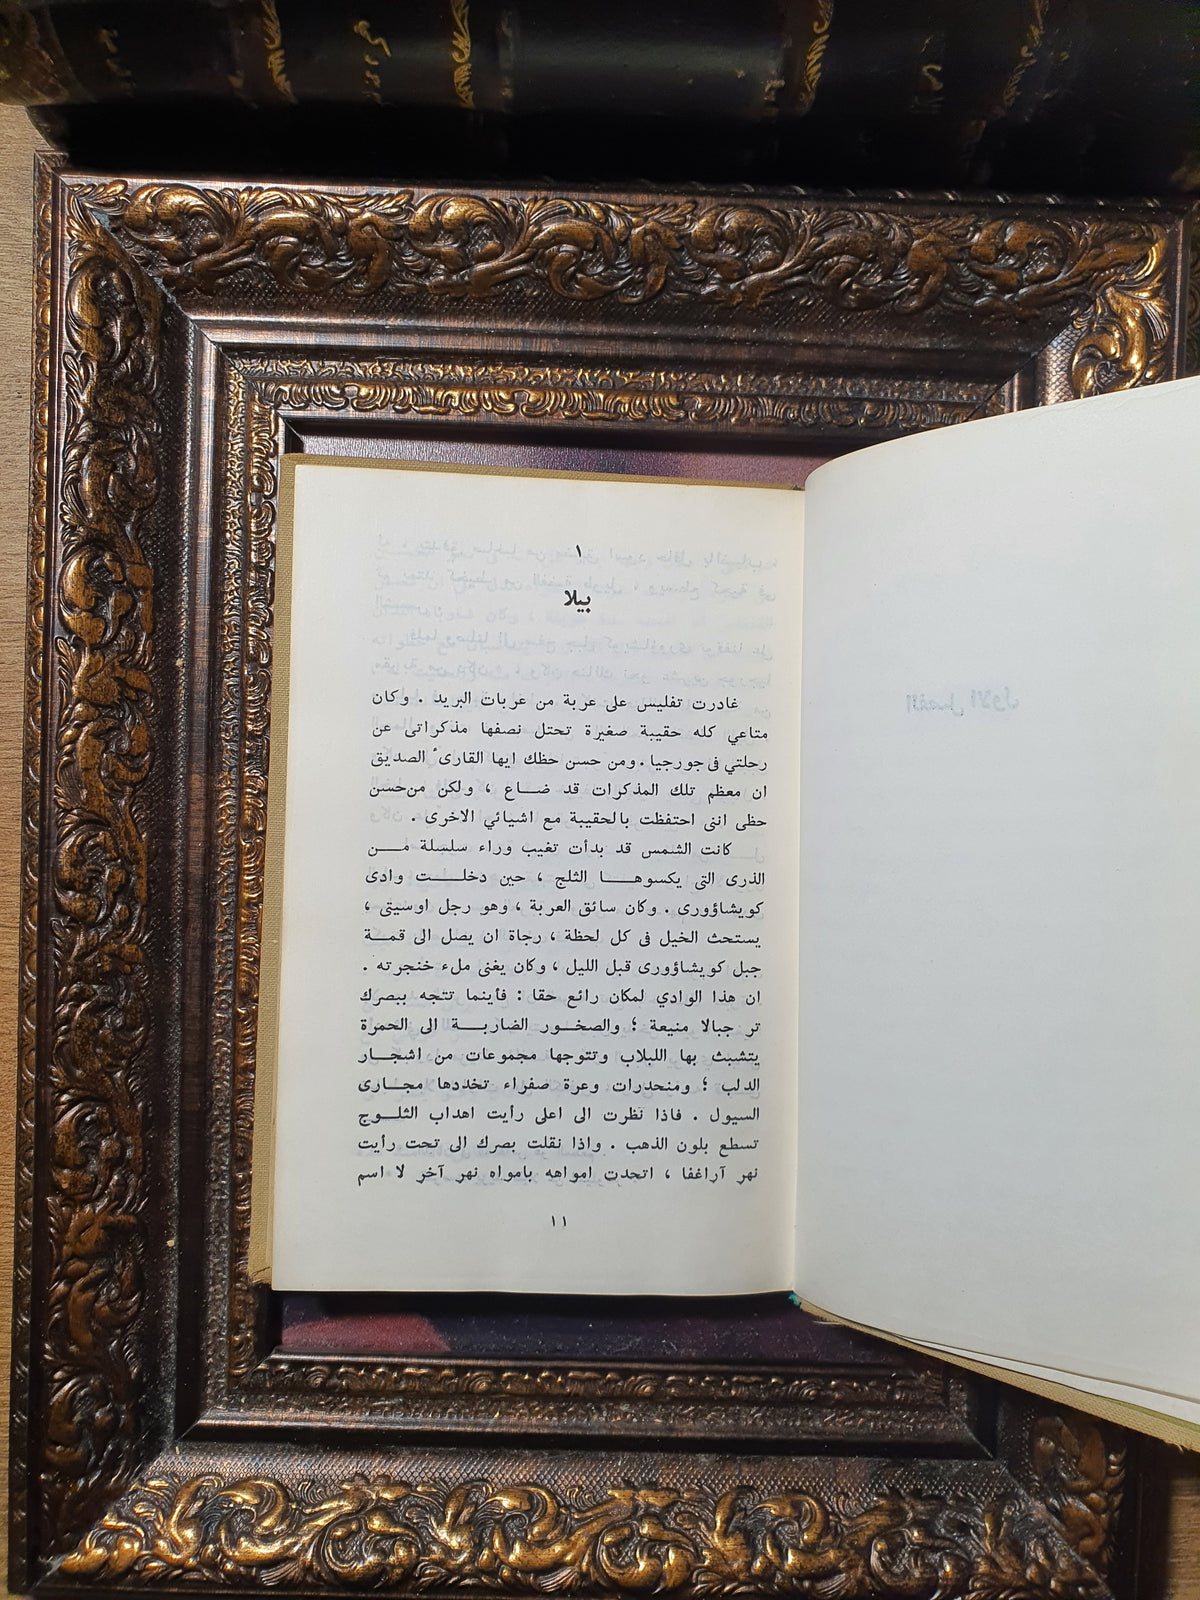 ١
بيلا
غادرت تفليس على عربة من عربات البريد . وكان
متاعي كله حقيبة صغيرة تحتل نصفها مذكراتى عن
رحلتي فى جورجيا . ومن حسن حظك ايها القارئ الصديق
ان معظم تلك المذكرات قد ضـــاع ، ولكن من حسن
حظى اننى احتفظت بالحقيبة مع اشيائي الاخرى .
كانت الشمس قد بدأت تغيب وراء سلسلة مـــن
الذرى التى يكسوهـــا الثلج ، حين دخلـــت وادى
كويشاؤورى . وكان سائق العربة ، وهو رجل اوسيتى ،
يستحث الخيل فى كل لحظة ، رجاة ان يصل الى قمـة
جبل كويشاؤورى قبل الليل ، وكان يغنى ملء خنجرته .
ان هذا الوادي لمكان رائع حقا : فأينما تتجه ببصرك
تر جبالا منيعة ؛ والصخـور الضاربـــة الى الحمرة
يتشبث بها اللبلاب وتتوجها مجموعات من اشجـار
الدلب ؛ ومنحدرات وعرة صفراء تخددها مجـارى
السيول . فاذا نظرت الى اعلى رأيت اهداب الثلـوج
تسطع بلون الذهب . واذا نقلت بصرك الى تحت رأيت
نهر آراغفا ، اتحدت امواهه بامواه نهر آخر لا اسم
١١
الفصل الاول